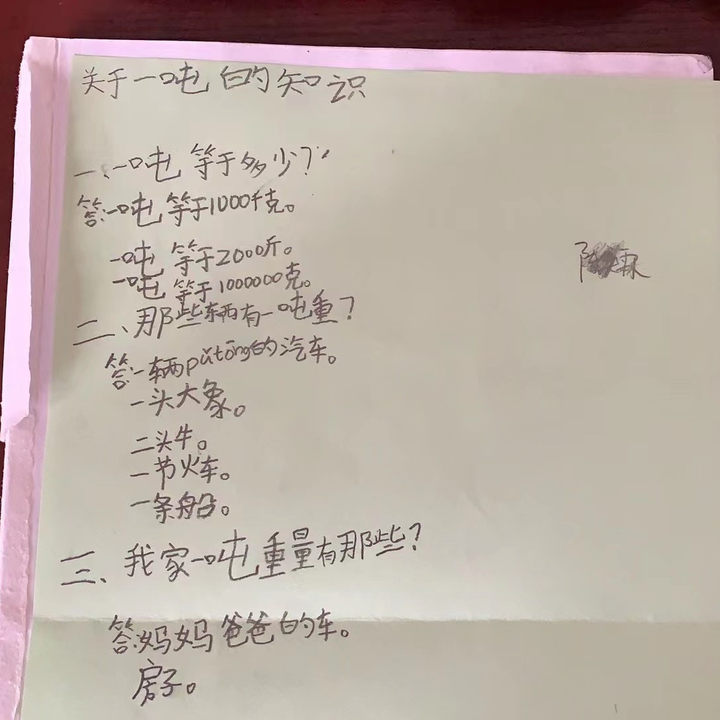 关于一吨的知识
一、一吨等于多少？
答:一吨等于1000千克。
一吨等于2000斤。
一吨等于1000000克。
二、那些辆有一吨重？
答:一辆pǔtōng的汽车。
一头大象。
二头牛。
一节火车。
一条船。
三、我家一吨重量有那些？
答:妈妈爸爸的车。
房子。